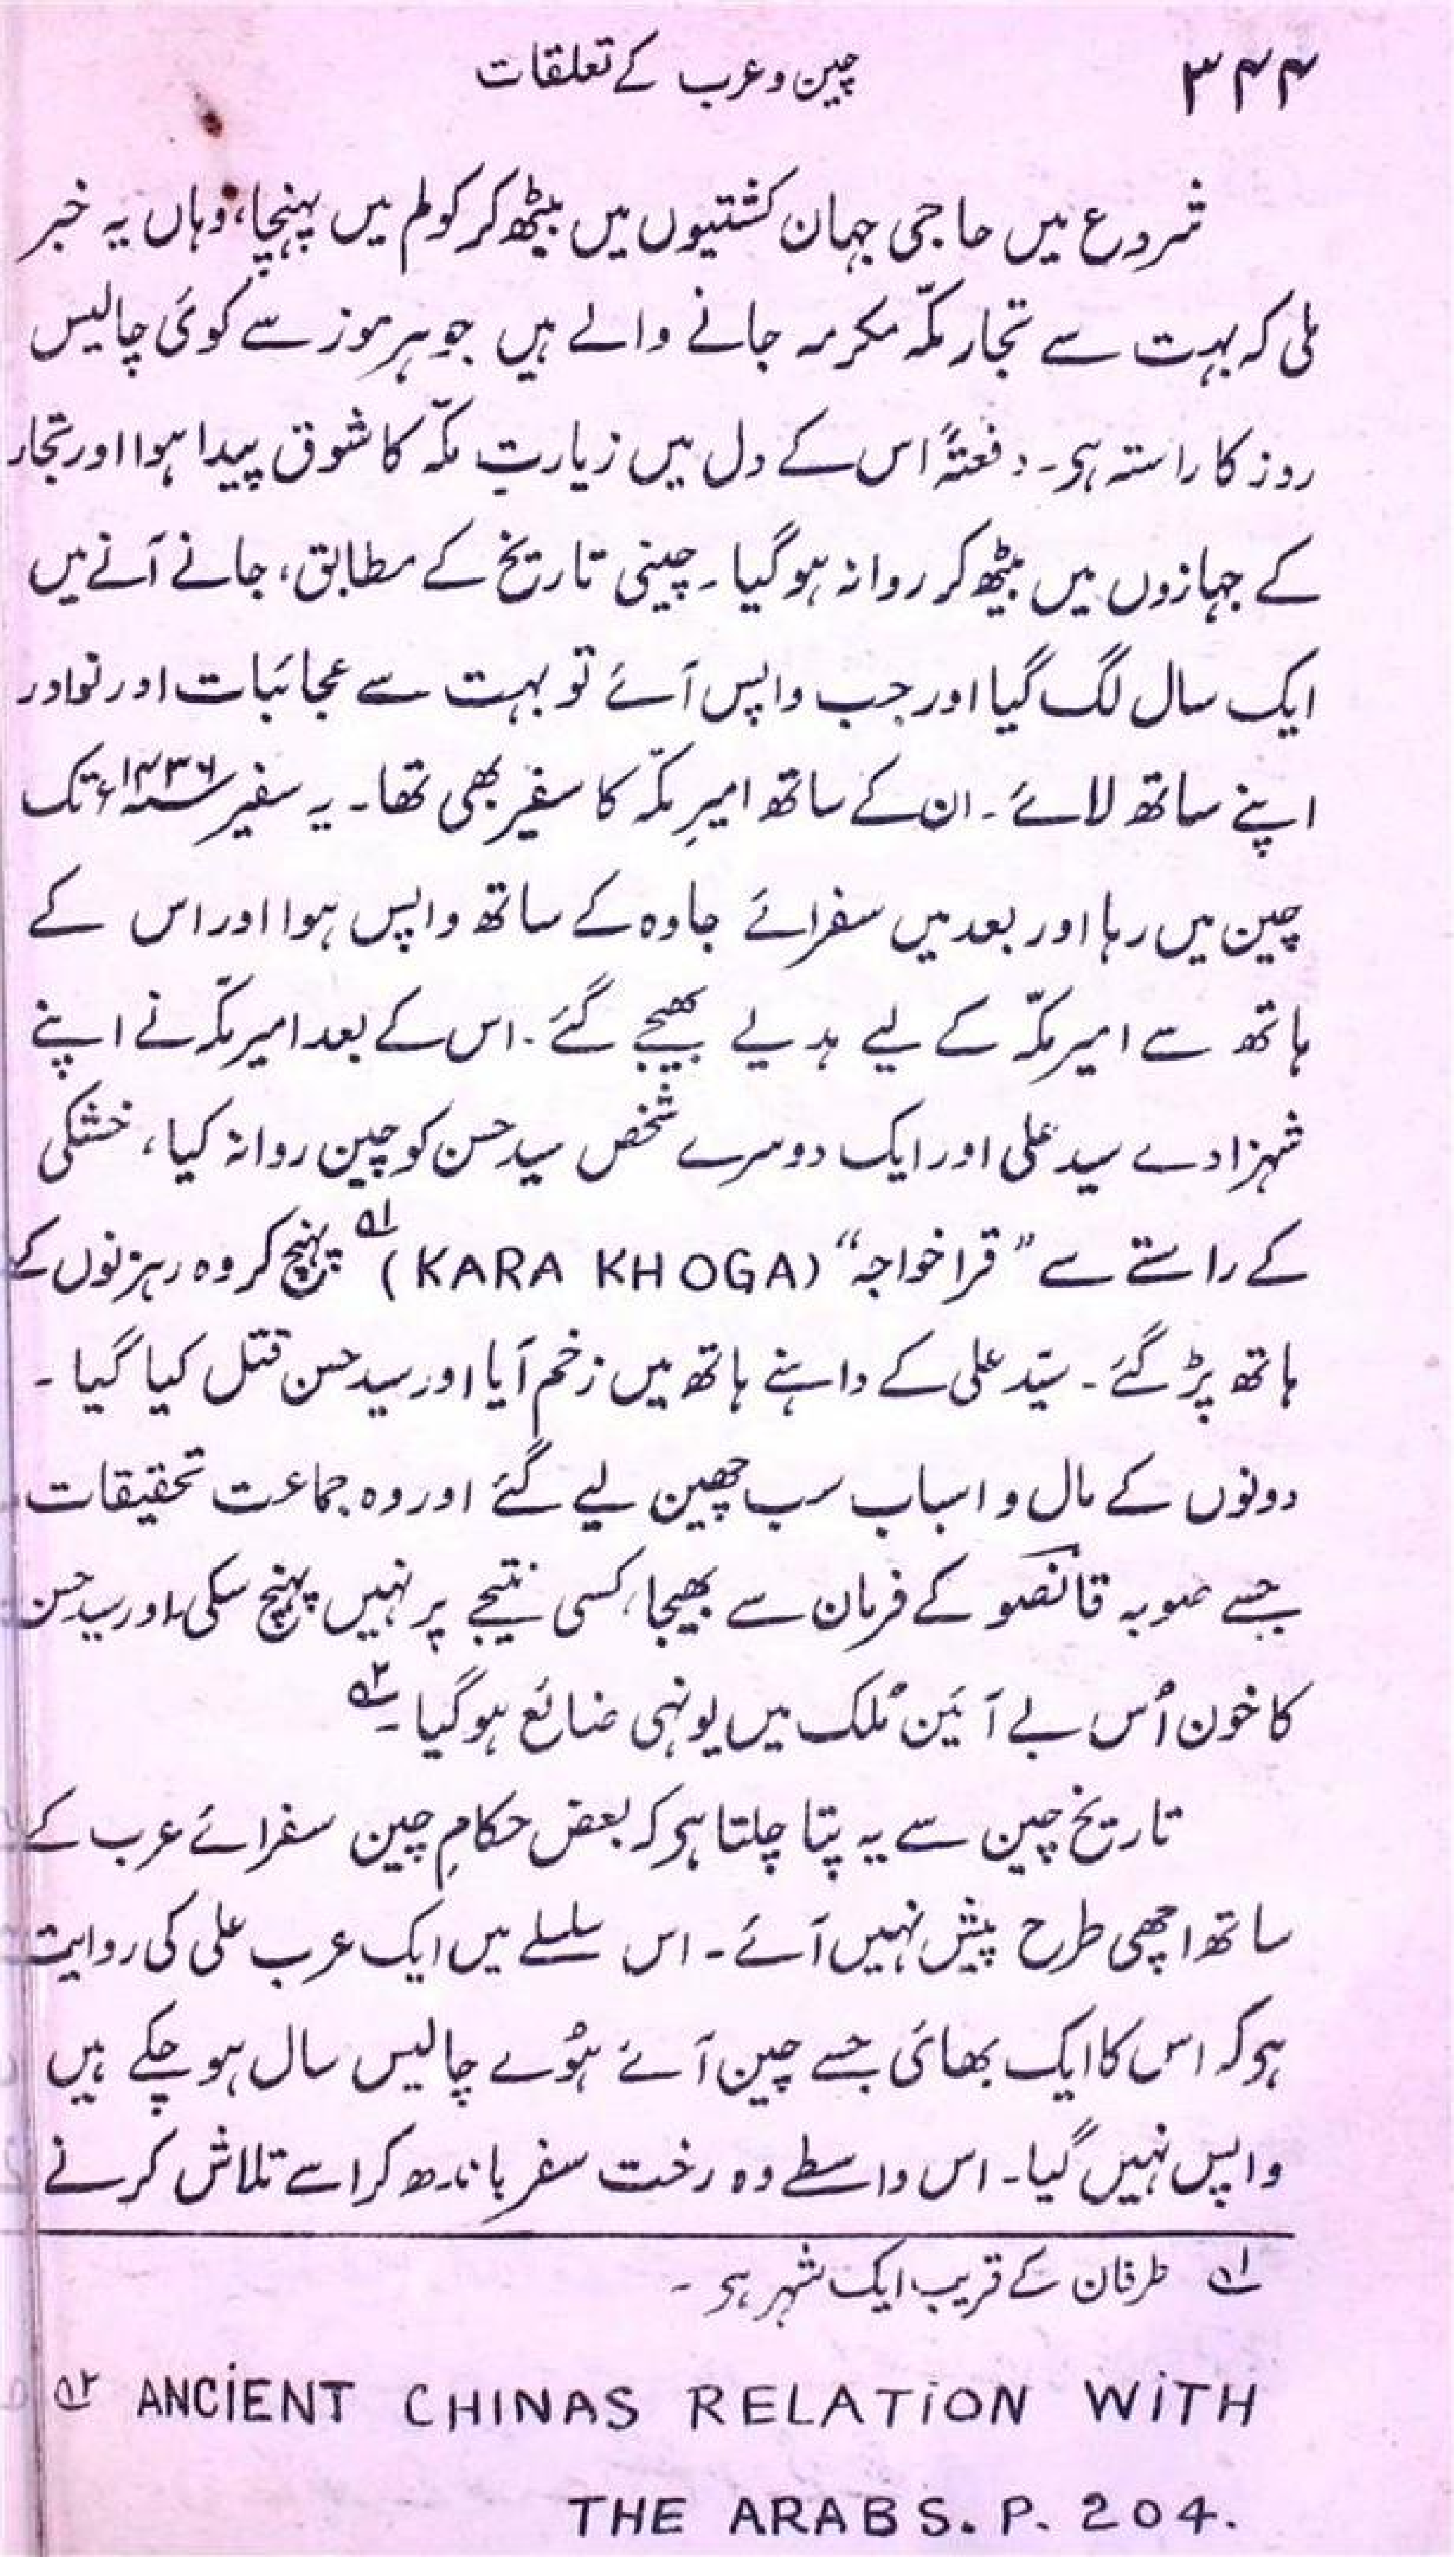 ۳۴۴ چین و عرب کے تعلقات
شروع میں حاجی جہان کشتیوں میں بیٹھ کر کولم میں پہنچا، وہاں یہ خبر
ملی کہ بہت سے تجار مکّہ مکرمہ جانے والے ہیں جو ہرموز سے کوئی چالیس
روز کا راستہ ہی۔ دفعتہً اس کے دل میں زیارتِ مکّہ کا شوق پیدا ہوا اور تجار
کے جہازوں میں بیٹھ کر روانہ ہوگیا۔ چینی تاریخ کے مطابق، جانے آنے میں
ایک سال لگ گیا اور جب واپس آئے تو بہت سے عجائبات اور نوادر
اپنے ساتھ لائے۔ ان کے ساتھ امیرِ مکّہ کا سفیر بھی تھا۔ یہ سفیر ۱۴۳۶ء تک
چین میں رہا اور بعد میں سفرائے جاوہ کے ساتھ واپس ہوا اور اس کے
ہاتھ سے امیر مکّہ کے لیے ہدیے بھیجے گئے۔ اس کے بعد امیر مکّہ نے اپنے
شہزادے سید علی اور ایک دوسرے شخص سید حسن کو چین روانہ کیا، خشکی
کے راستے سے ”قراخواجہ“ (KARA KHOGA) ؁۱ پہنچ کر وہ رہزنوں کے
ہاتھ پڑ گئے۔ سیّد علی کے داہنے ہاتھ میں زخم آیا اور سید حسن قتل کیا گیا۔
دونوں کے مال و اسباب سب چھین لیے گئے اور وہ جماعت تحقیقات
جسے صوبہ قانصو کے فرمان سے بھیجا، کسی نتیجے پر نہیں پہنچ سکی اور سید حسن
کا خون اُس بے آئین مُلک میں یونہی ضائع ہوگیا۔ ؁۲
تاریخ چین سے یہ پتا چلتا ہی کہ بعض حکامِ چین سفرائے عرب کے
ساتھ اچھی طرح پیش نہیں آئے۔ اس سلسلے میں ایک عرب علی کی روایت
ہی کہ اس کا ایک بھائی جسے چین آئے ہُوئے چالیس سال ہوچکے ہیں
واپس نہیں گیا۔ اس واسطے وہ رخت سفر باندھ کر اسے تلاش کرنے
؁۱ طرفان کے قریب ایک شہر ہی۔
؁۲ ANCIENT CHINAS RELATION WITH
THE ARABS. P. 204.